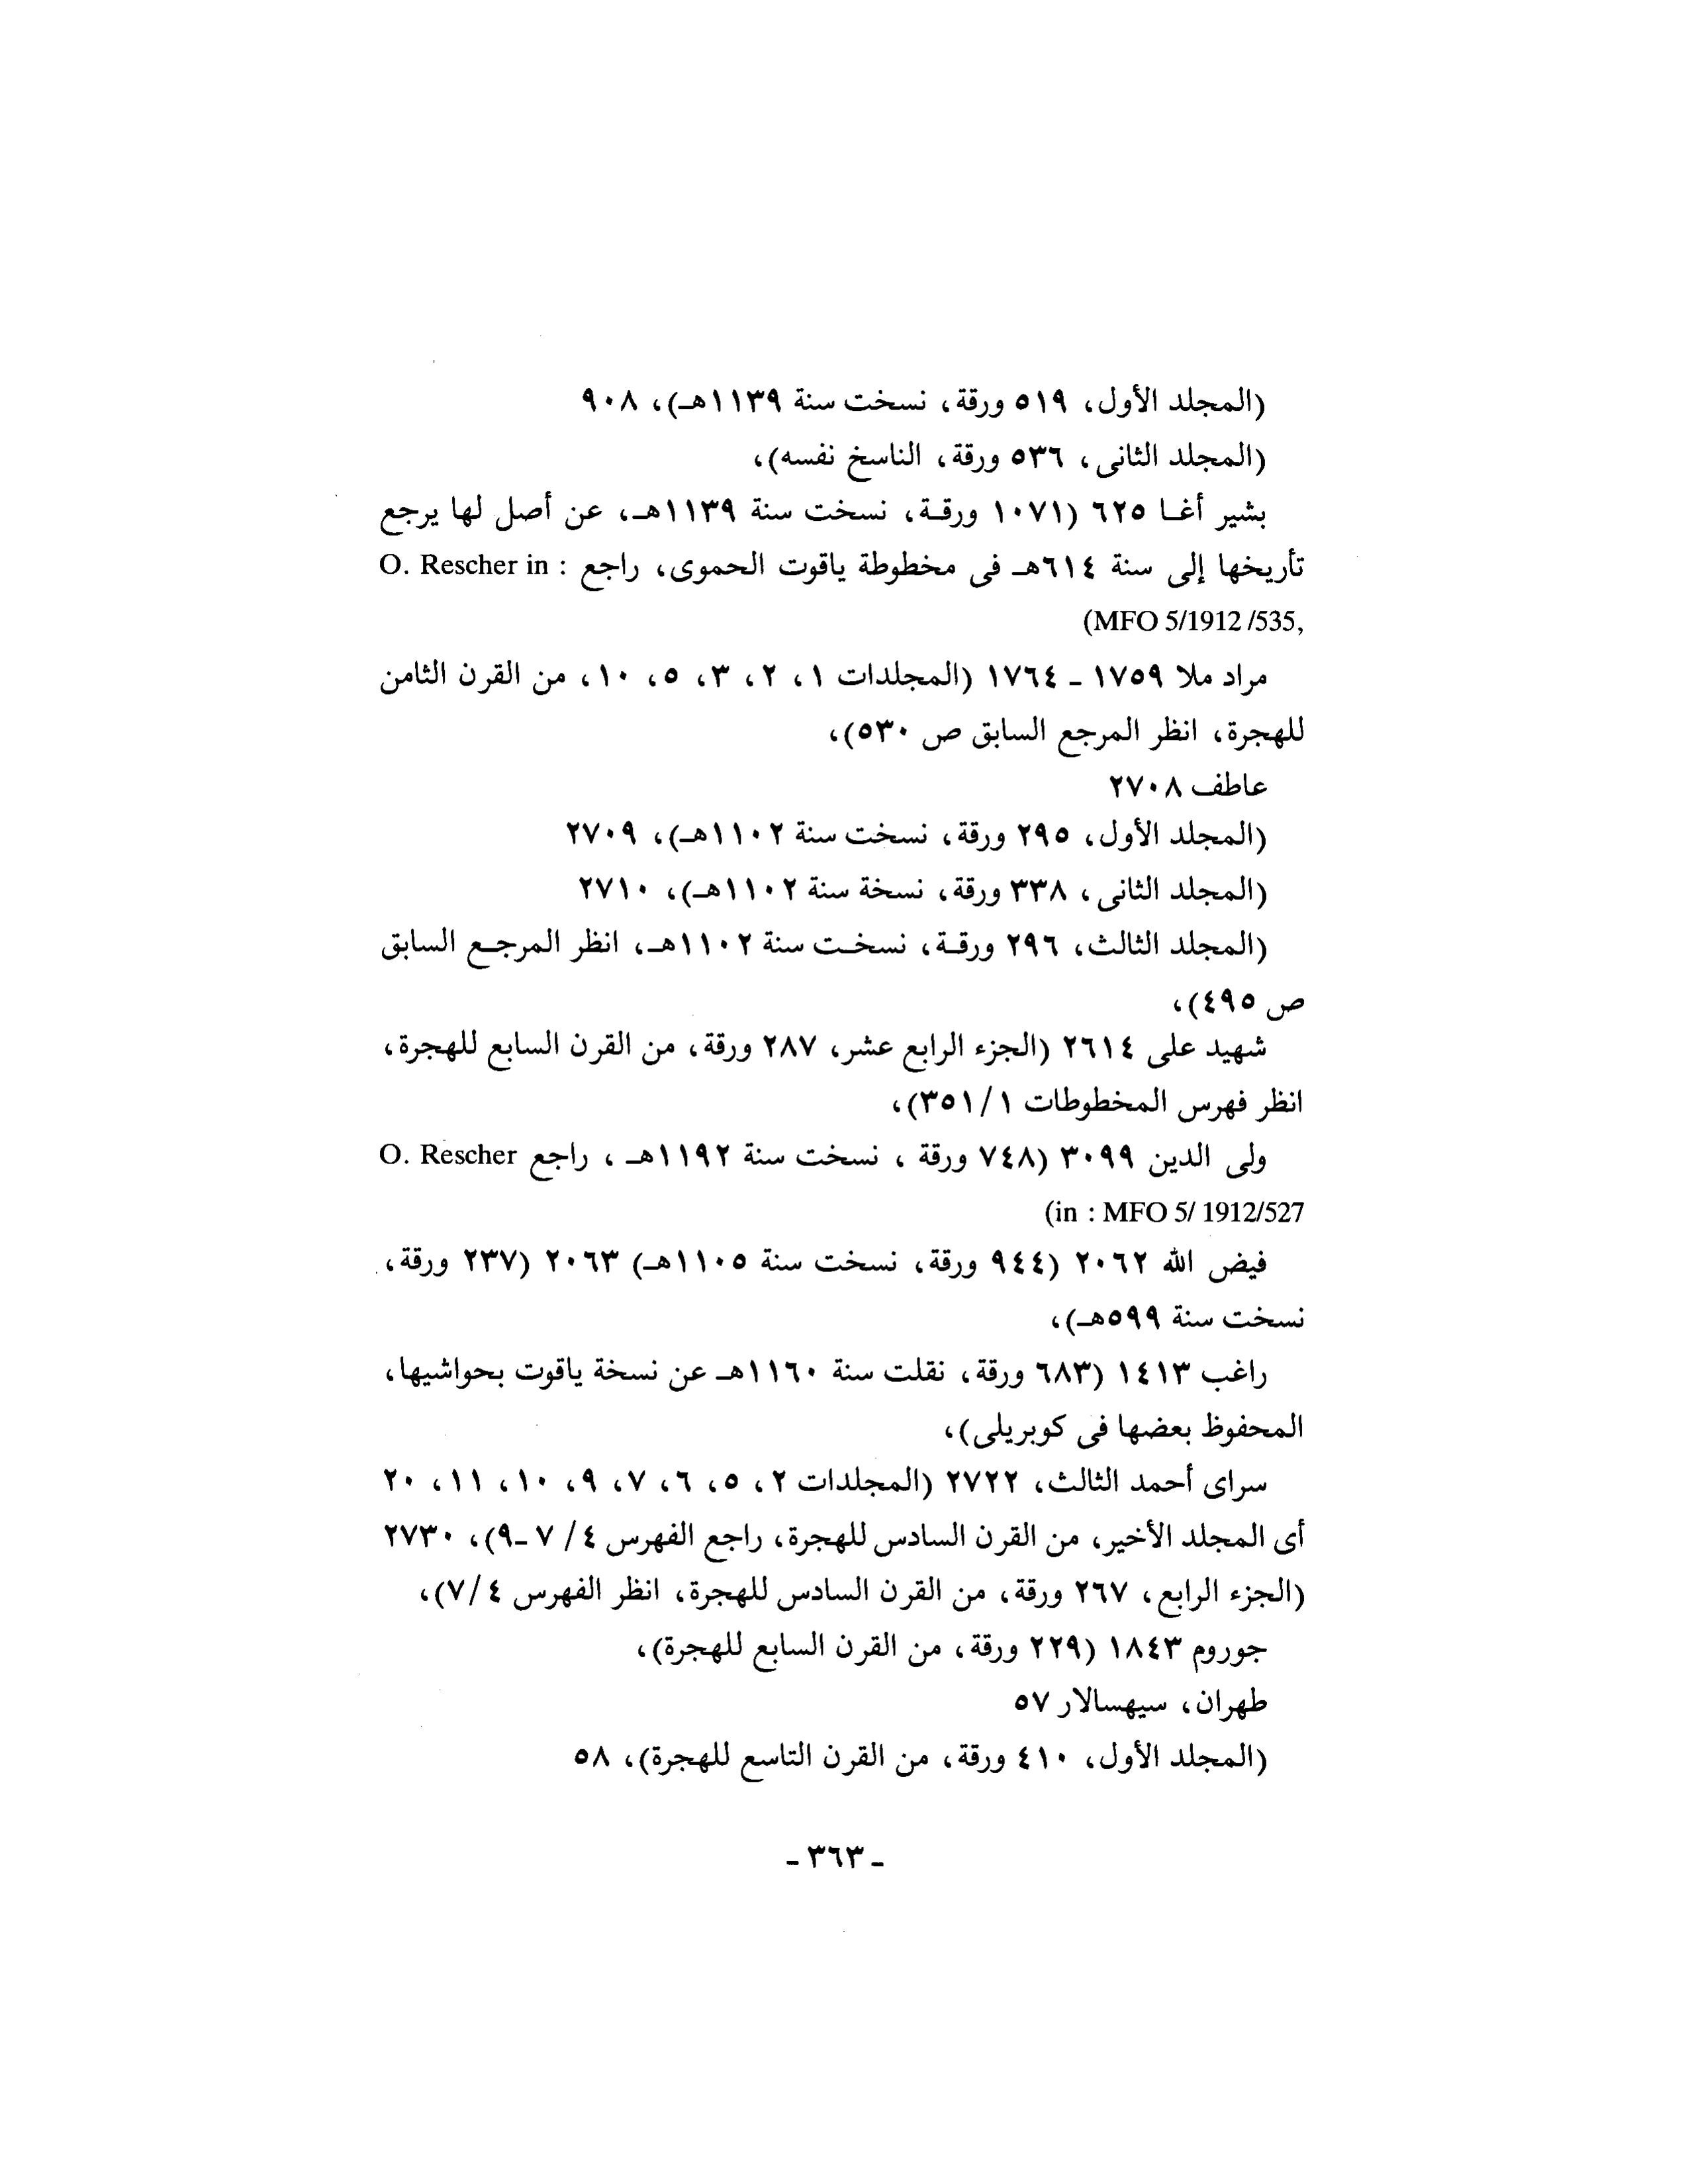 (المجلد الأول، ٥١٩ ورقة، نسخت سنة ١١٣٩هـ)، ٩٠٨
(المجلد الثانى، ٥٣٦ ورقة، الناسخ نفسه)،
بشير أغـا ٦٢٥ (١٠٧١ ورقـة، نسخت سنة ١١٣٩هـ، عن أصل لها يرجع
تأريخها إلى سنة ٦١٤هـ فى مخطوطة ياقوت الحموى، راجع : O. Rescher in
(MFO 5/1912 /535,
مراد ملا ١٧٥٩ ـ ١٧٦٤ (المجلدات ١، ٢، ٣، ٥، ١٠، من القرن الثامن
للهجرة، انظر المرجع السابق ص ٥٣٠)،
عاطف ٢٧٠٨
(المجلد الأول، ٢٩٥ ورقة، نسخت سنة ١١٠٢هـ)، ٢٧٠٩
(المجلد الثانى، ٣٣٨ ورقة، نسخة سنة ١١٠٢هـ)، ٢٧١٠
(المجلد الثالث، ٢٩٦ ورقـة، نسخـت سنة ١١٠٢هـ، انظر المرجـع السابق
ص ٤٩٥)،
شهيد على ٢٦١٤ (الجزء الرابع عشر، ٢٨٧ ورقة، من القرن السابع للهجرة،
انظر فهرس المخطوطات ١/ ٣٥١)،
ولى الدين ٣٠٩٩ (٧٤٨ ورقة ، نسخت سنة ١١٩٢هـ ، راجع O. Rescher
(in : MFO 5/ 1912/527
فيض الله ٢٠٦٢ (٩٤٤ ورقة، نسخت سنة ١١٠٥هـ) ٢٠٦٣ (٢٣٧ ورقة،
نسخت سنة ٥٩٩هـ)،
راغب ١٤١٣ (٦٨٣ ورقة، نقلت سنة ١١٦٠هـ عن نسخة ياقوت بحواشيها،
المحفوظ بعضها فى كوبريلى)،
سراى أحمد الثالث، ٢٧٢٢ (المجلدات ٢، ٥، ٦، ٧، ٩، ١٠، ١١، ٢٠
أى المجلد الأخير، من القرن السادس للهجرة، راجع الفهرس ٤/ ٧ ـ٩)، ٢٧٣٠
(الجزء الرابع، ٢٦٧ ورقة، من القرن السادس للهجرة، انظر الفهرس ٤/ ٧)،
جوروم ١٨٤٣ (٢٢٩ ورقة، من القرن السابع للهجرة)،
طهران، سيهسالار ٥٧
(المجلد الأول، ٤١٠ ورقة، من القرن التاسع للهجرة)، ٥٨
ـ ٣٦٣ ـ